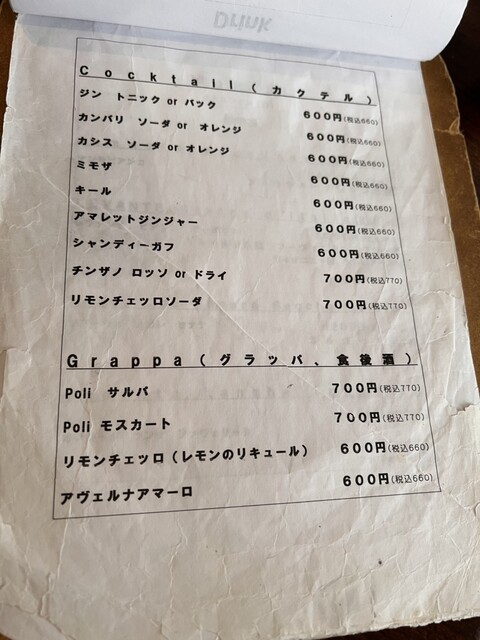 Drink
Cocktail(カクテル)
ジン トニック or バック 600円(税込660)
カンパリ ソーダ or オレンジ 600円(税込660)
カシス ソーダ or オレンジ 600円(税込660)
ミモザ 600円(税込660)
キール 600円(税込660)
アマレットジンジャー 600円(税込660)
シャンディーガフ 600円(税込660)
チンザノ ロッソ or ドライ 700円(税込770)
リモンチェッロソーダ 700円(税込770)
Grappa(グラッパ、食後酒)
Poli サルパ 700円(税込770)
Poli モスカート 700円(税込770)
リモンチェッロ(レモンのリキュール) 600円(税込660)
アヴェルナアマーロ 600円(税込660)